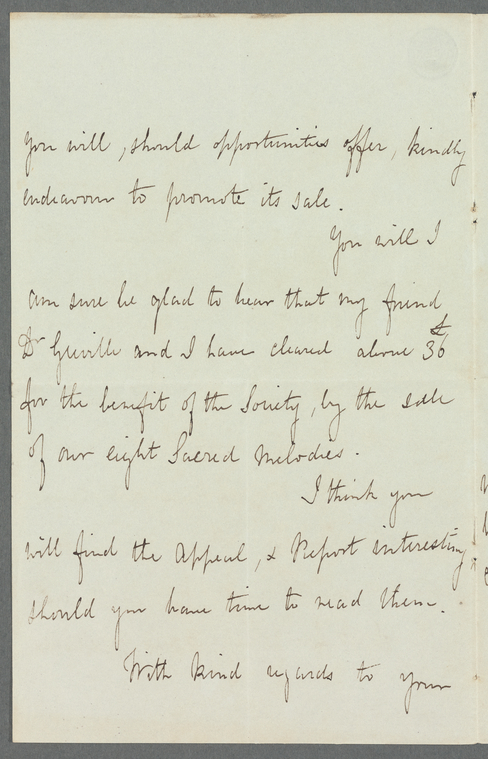 you will, should opportunities offer, kindly
endeavour to promote its sale.
You will I
am sure be glad to hear that my friend
Dr Greville and I have cleared above £36
for the benefit of the Society, by the sale
of our eight Sacred Melodies.
I think you
will find the Appeal, & Report interesting
should you have time to read them.
With kind regards to your